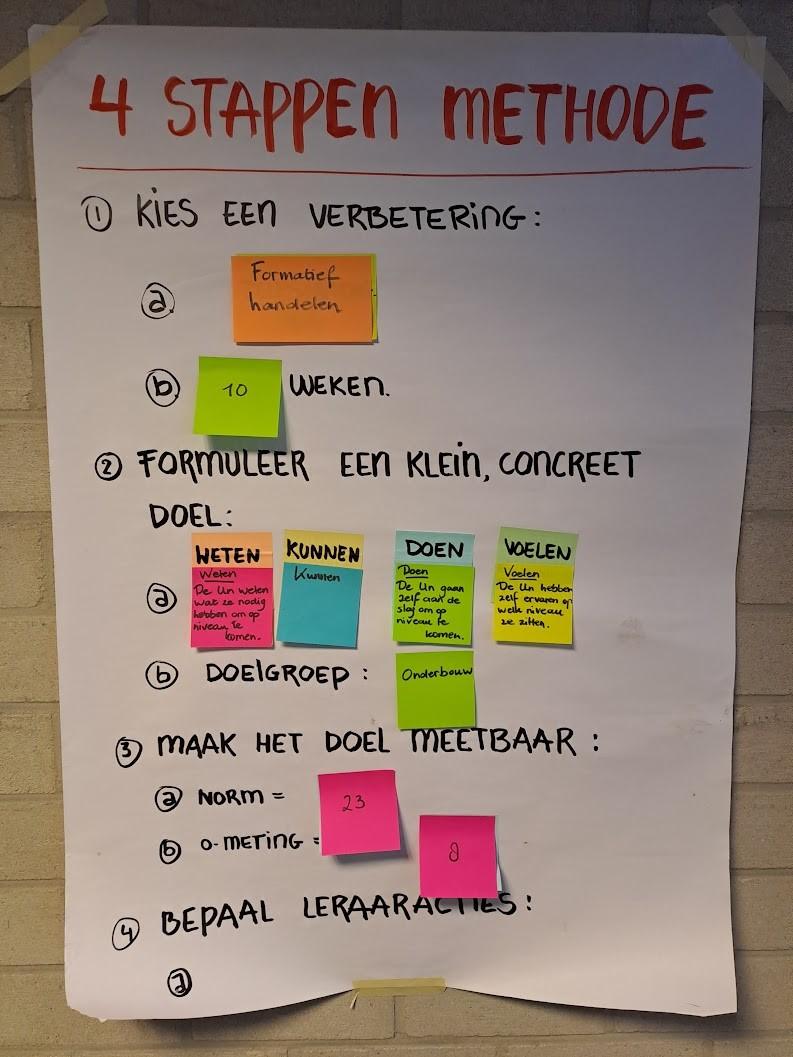 4 STAPPEN METHODE
① KIES EEN VERBETERING:
ⓐ
Formatief
handelen
ⓑ 10 WEKEN.
② FORMULEER EEN KLEIN, CONCREET
DOEL:
ⓐ
WETEN
Weten
De lln weten
wat ze nodig
hebben om op
niveau te
komen.
KUNNEN
Kunnen
DOEN
Doen
De lln gaan
zelf aan de
slag om op
niveau te
komen.
VOELEN
Voelen
De lln hebben
zelf ervaren op
welk niveau
ze zitten.
ⓑ DOELGROEP: Onderbouw
③ MAAK HET DOEL MEETBAAR:
ⓐ NORM = 23
ⓑ 0-METING = 8
④ BEPAAL LERAARACTIES:
ⓐ